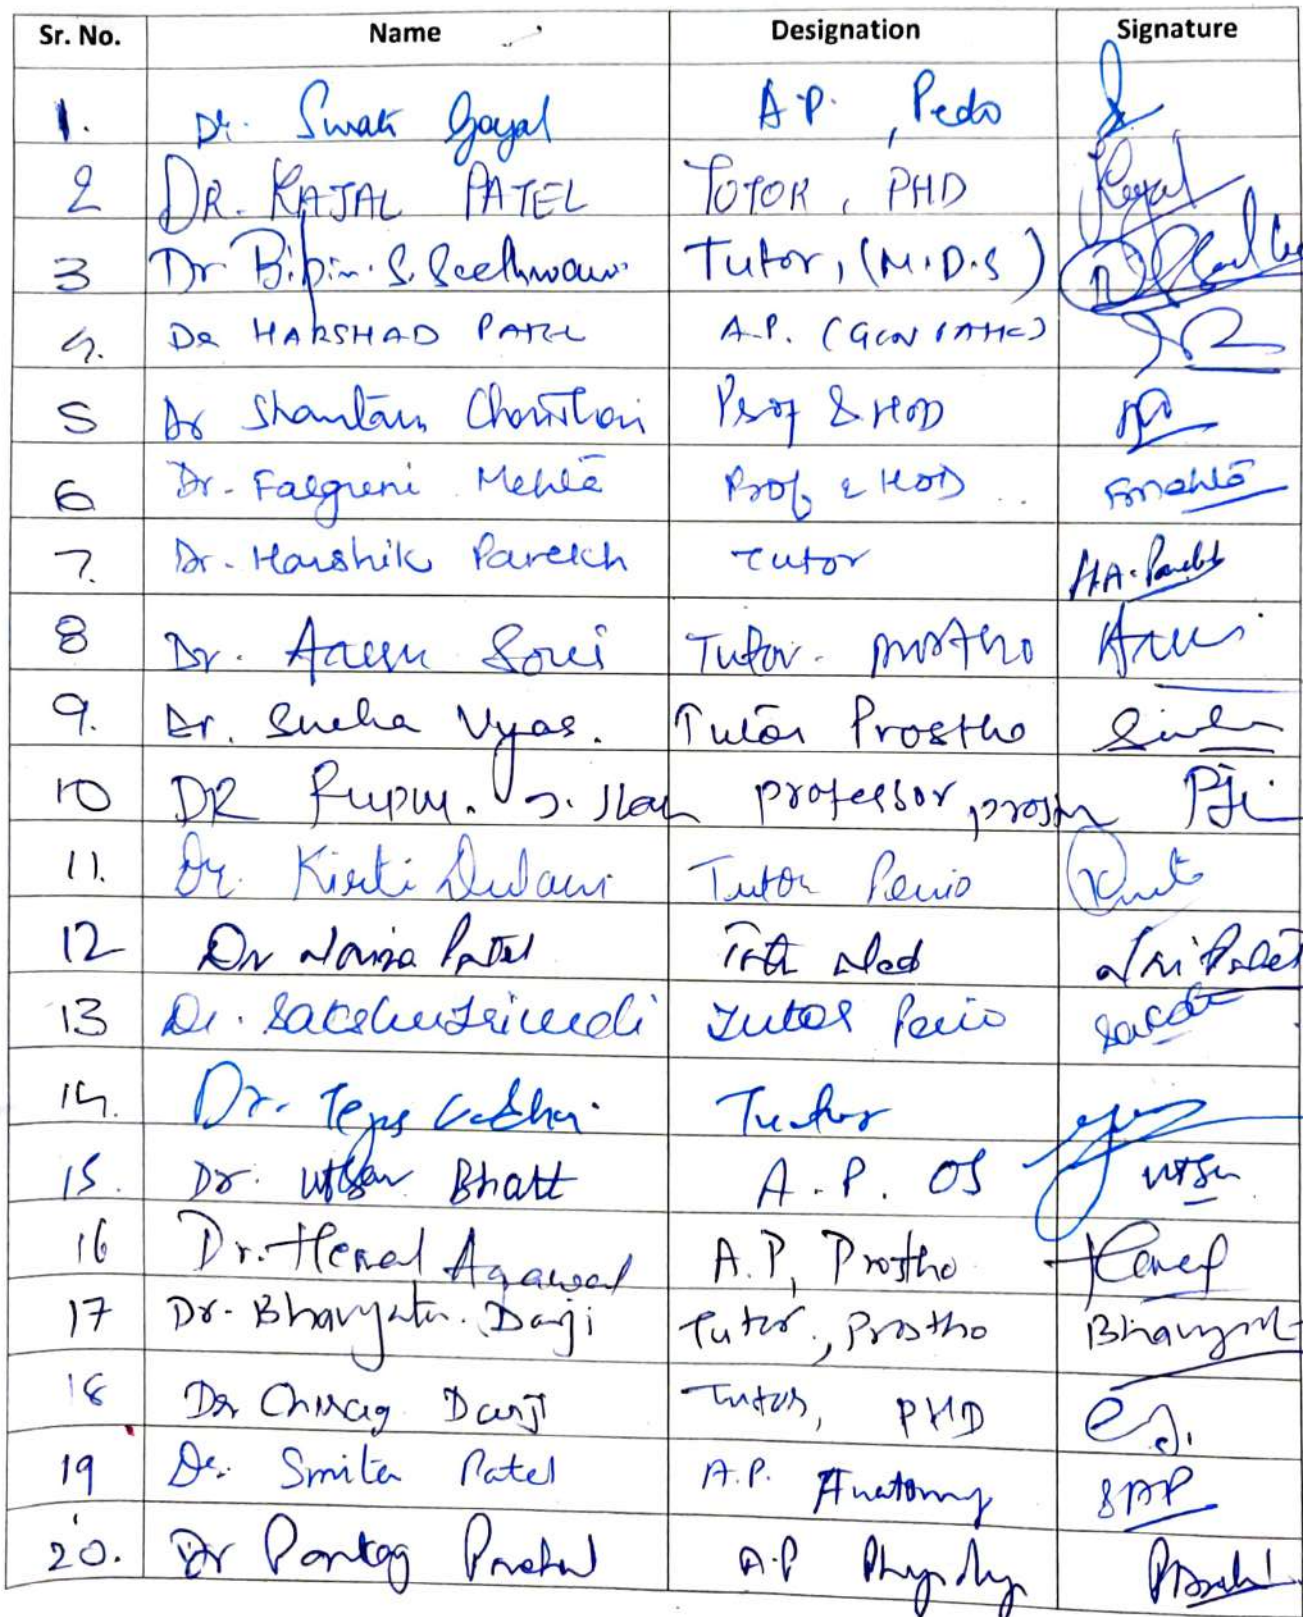 Sr. No. Name Designation Signature
1. Dr. Swati Goyal A.P., Pedo
2 DR. KAJAL PATEL TUTOR, PHD Kajal
3 Dr. Bipin. S. Tutor, (M.D.S)
4. DR HARSHAD PATEL A.P.
5 Dr Shantanu Choudhari Prof & HOD
6 Dr. Falguni Mehta Prof & HOD Fmehta
7. Dr. Harshik Parekh Tutor HA. Parekh
8 Dr. Soni Tutor. prostho
9. Dr. Sneha Vyas. Tutor Prostho Sneha
10 DR Rupal. J. Shah professor, prostho
11. Dr. Kirti Dulani Tutor Perio Kirti
12 Dr Patel
13 Dr. Sakshi Trivedi Tutor Perio
14. Dr. Tejas Tutor
15. Dr. Utsav Bhatt A.P. OS Utsav
16 Dr. Hemal Agrawal A.P, Prostho Hemal
17 Dr. Bhavyata. Darji Tutor, Prostho
18 Dr Chirag Darji Tutor, PHD
19 Dr. Smita Patel A.P. Anatomy
20. Dr A.P Physiology